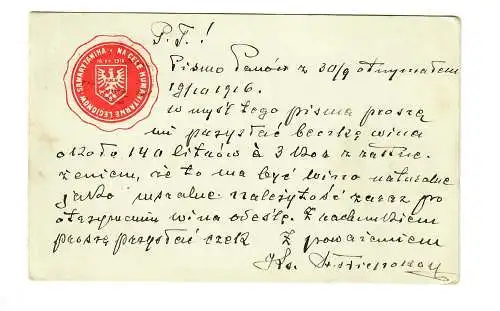 SAMARYTANIN • NA CELE HUMANITARNE LEGIONÓW
16.VIII.1914
P. T. !
Pismo Panów z 30/9 otrzymałem
12/10 1916.
W myśl tego pisma proszę
mi przysłać beczkę wina
około 140 litrów à 3 Kor z zastrze-
żeniem, że to ma być wino naturalne
jako mszalne. Należytość zaraz po
otrzymaniu wina odeślę. Z rachunkiem
proszę przysłać czek Z poważaniem
Ks.